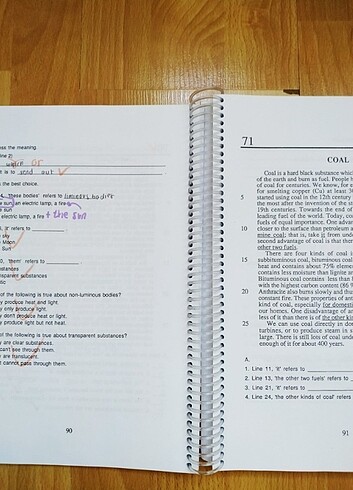 ss the meaning.
ine 2!
work or
it is to send out
s the best choice.
4, 'these bodies' refers to luminous bodies
e sun, an electric lamp, a fire
e sun
electric lamp, a fire + the sun
5, 'it' refers to
e sky
Moon
Sun
0, 'them' refers to
ostances
nsparent substances
stic
of the following is true about non-luminous bodies?
y produce heat and light.
y only produce light.
y don't produce heat or light.
y produce light but not heat.
of the following is true about transparent substances?
y are clear substances.
can't see through them.
e are translucent.
t cannot pass through them.
90
71
COAL
Coal is a hard black substance which
of the earth and burn as fuel. People h
of coal for centuries. We know, for e
for smelting copper (Cu) at least 3
5 started using coal in the 12th century
the most after the invention of the s
19th centuries. Towards the end of
leading fuel of the world. Today, co
fuels of equal importance. One advant
10 closer to the surface than petroleum a
mine coal; that is, take it from under
second advantage of coal is that there
other two fuels.
There are four kinds of coal i
15 subbituminous coal, bituminous coal
heat and contains about 75% elemen
contains less moisture than lignite an
Bituminous coal contains less than
with the highest carbon content (86 %
20 Anthracite also burns slowly and thus
constant fire. These properties of ant
kind of coal, especially for domestic
our homes. One disadvantage of an
less of it than there is of the other kin
25 We can use coal directly in dome
turbines, or to produce steam in s
large. There is still lots of coal unde
enough of it for about 400 years.
A.
1. Line 11, 'it' refers to
2. Line 13, 'the other two fuels' refers to
3. Line 21, 'it' refers to
4. Line 24, 'the other kinds of coal' refers
91